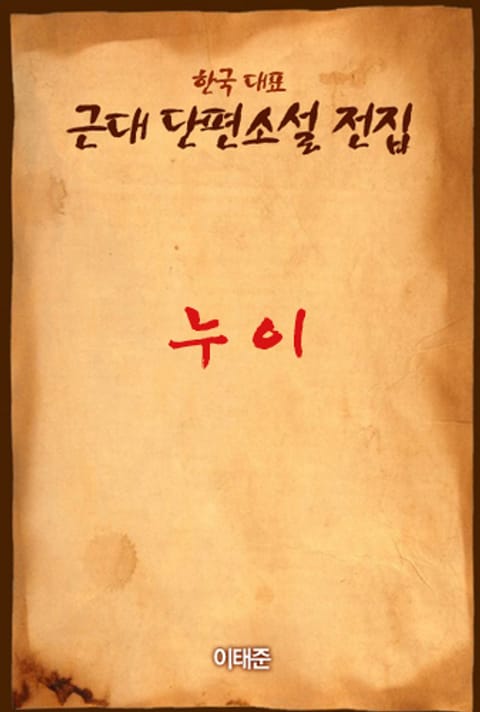 한국 대표
근대 단편소설 전집
누이
이태준